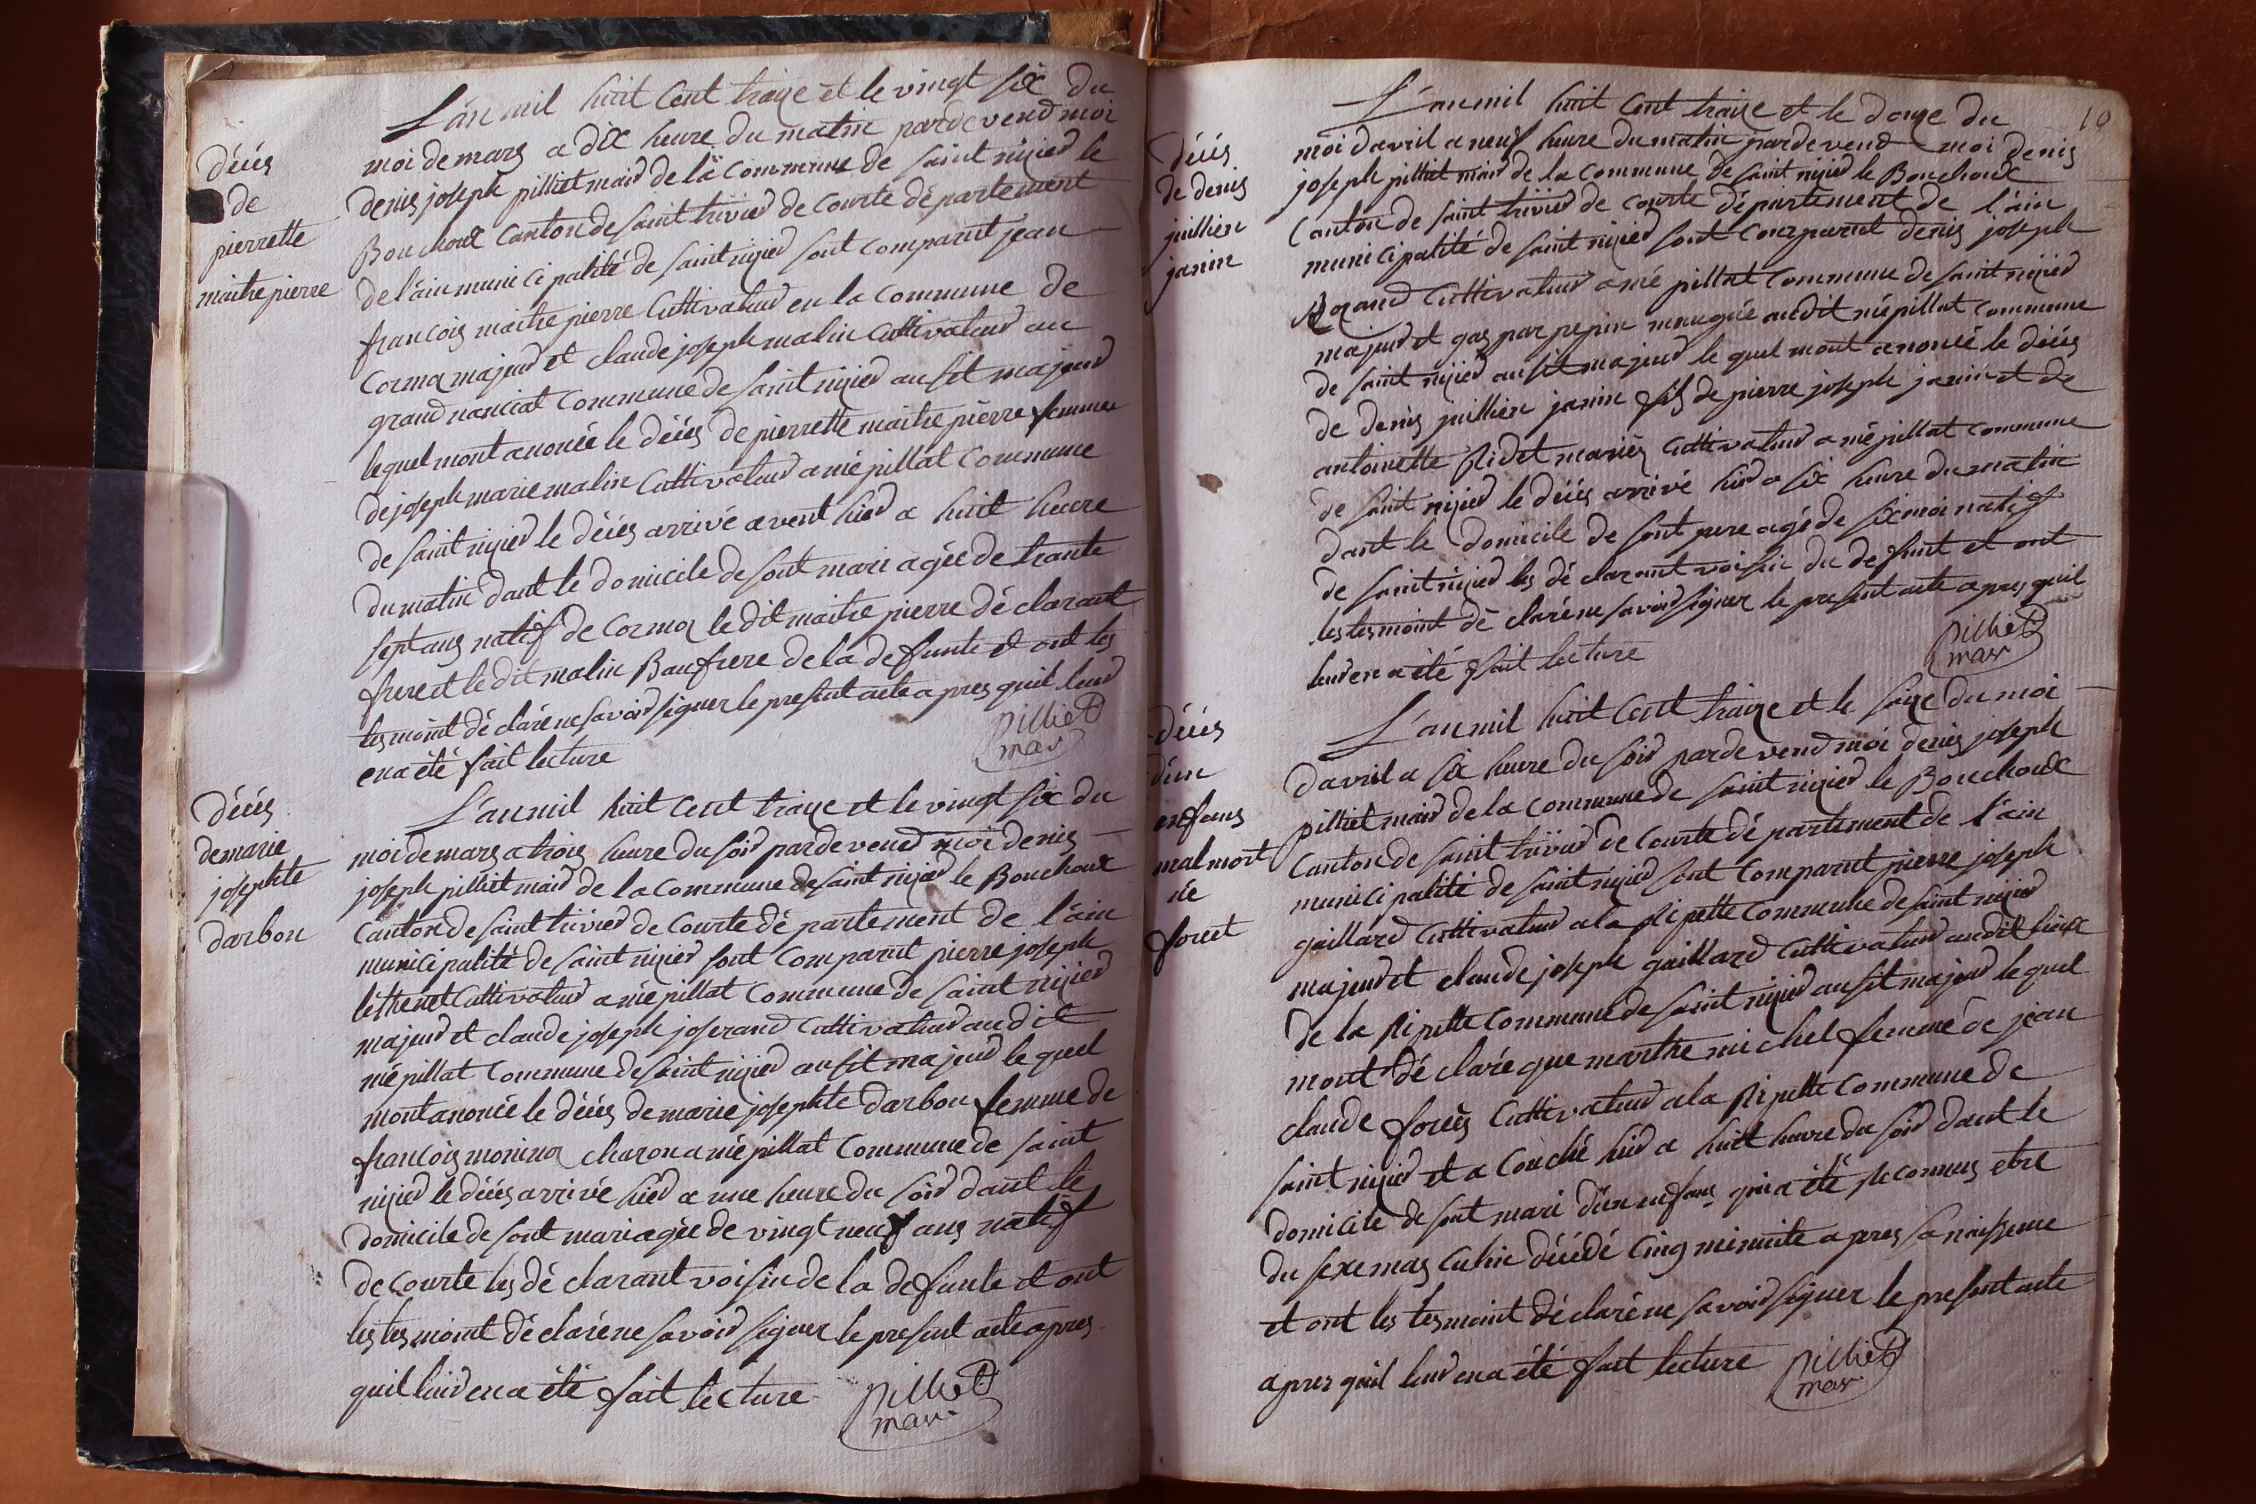 décés
de
pierrette
maitre pierre
L'an mil huit cent traize et le vingt six du
moi de mars a dix heure du matin pardevend moi
denis joseph pilliet maid de la commune de saint nizied le
Bouchoux canton de saint trivied de courte département
de l'ain municipalité de saint nizied sont comparut jean
francois maitre pierre cultivateud en la commune de
cormoz majeud et claude joseph malin cultivateud au
grand nanciat commune de saint nizied ausit majeud
lequel mont anoncé le décés de pierrette maitre pierre femme
de joseph marie malin cultivateud a mépillat commune
de saint nizied le décés arrivé avent hied a huit heure
du matin dant le domicile de sont mari agée de trante
sept ans natif de cormoz le dit maitre pierre déclarant
frere et le dit malin Baufrere de la defunte et ont les
tesmoint déclaré ne savoid signer le present acte apres quil leud
en a été fait lecture
pilliet
mair
décés
de marie
josephte
darbon
L'an mil huit cent traize et le vingt six du
moi de mars a trois heure du soid pardevend moi denis
joseph pilliet maid de la commune de saint nizied le Bouchoux
canton de saint trivied de courte département de l'ain
municipalité de saint nizied sont comparut pierre joseph
lethenet cultivateud a mépillat commune de saint nizied
majeud et claude joseph joserand cultivateud audit
mépillat commune de saint nizied ausit majeud le quel
mont anoncé le décés de marie josephte darbon femme de
francois moninot charon a mépillat commune de saint
nizied le décés arrivé hied a une heure du soid dant le
domicile de sont mari agée de vingt neuf ans natif
de courte les déclarant voisin de la defunte et ont
les tesmoint déclaré ne savoid signer le present acte apres
quil leud en a été fait lecture
pilliet
mair
10
décés
de denis
juillien
janin
L'an mil huit cent traize et le douze du
moi davril a neuf heure du matin pardevend moi denis
joseph pilliet maid de la commune de saint nizied le Bouchoux
canton de saint trivied de courte département de l'ain
municipalité de saint nizied sont comparut denis joseph
Bozand cultivateud a mépillat commune de saint nizied
majeud et gaspar pepin mougée audit mépillat commune
de saint nizied ausit majeud le quel mont anoncé le décés
de denis juillien janin fils de pierre joseph janin et de
antoinette Ridet mariés cultivateud a mépillat commune
de saint nizied le décés arrivé hied a six heure du matin
dant le domicile de sont pere agé de six moi natif
de saint nizied les déclarant voisin du defunt et ont
les tesmoint déclaré ne savoid signer le present acte apres quil
leud en a été fait lecture
pilliet
mair
décés
d'un
enfans
mal mort
née
foret
L'an mil huit cent traize et le saize du moi
davril a six heure du soid pardevend moi denis joseph
pilliet maid de la commune de saint nizied le Bouchoux
canton de saint trivied de courte département de l'ain
municipalité de saint nizied sont comparut pierre joseph
gaillard cultivateud a la Ripette commune de saint nizied
majeud et claude joseph gaillard cultivateud audit lieux
de la Ripette commune de saint nizied ausit majeud le quel
mont déclaré que marthe michel femme de jean
claude forés cultivateud a la Ripette commune de
saint nizied et a couché hied a huit heure du soid dant le
domicile de sont mari d'un enfans qui a été Reconnus etre
du sexe mascuhin décédé cinq minuite apres sa naissence
et ont les tesmoint déclaré ne savoid signer le present acte
apres quil leud en a été fait lecture
pilliet
mair